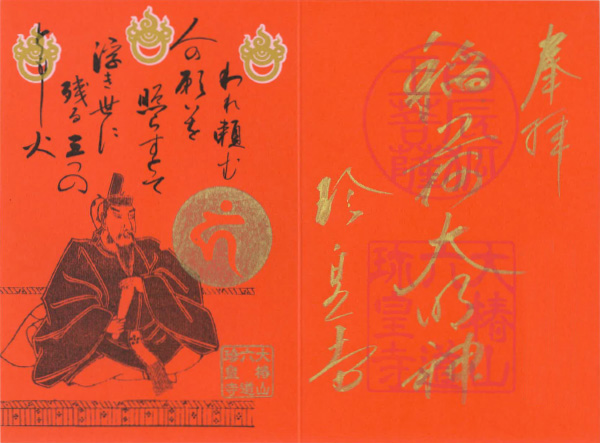 奉拝
稲荷大明神
珍皇寺
王菩薩
大椿山
六道
珍皇寺
われ頼む
人の願いを
照らすとて
浮き世に
残る三つの
ともし火
大椿山
六道
珍皇寺